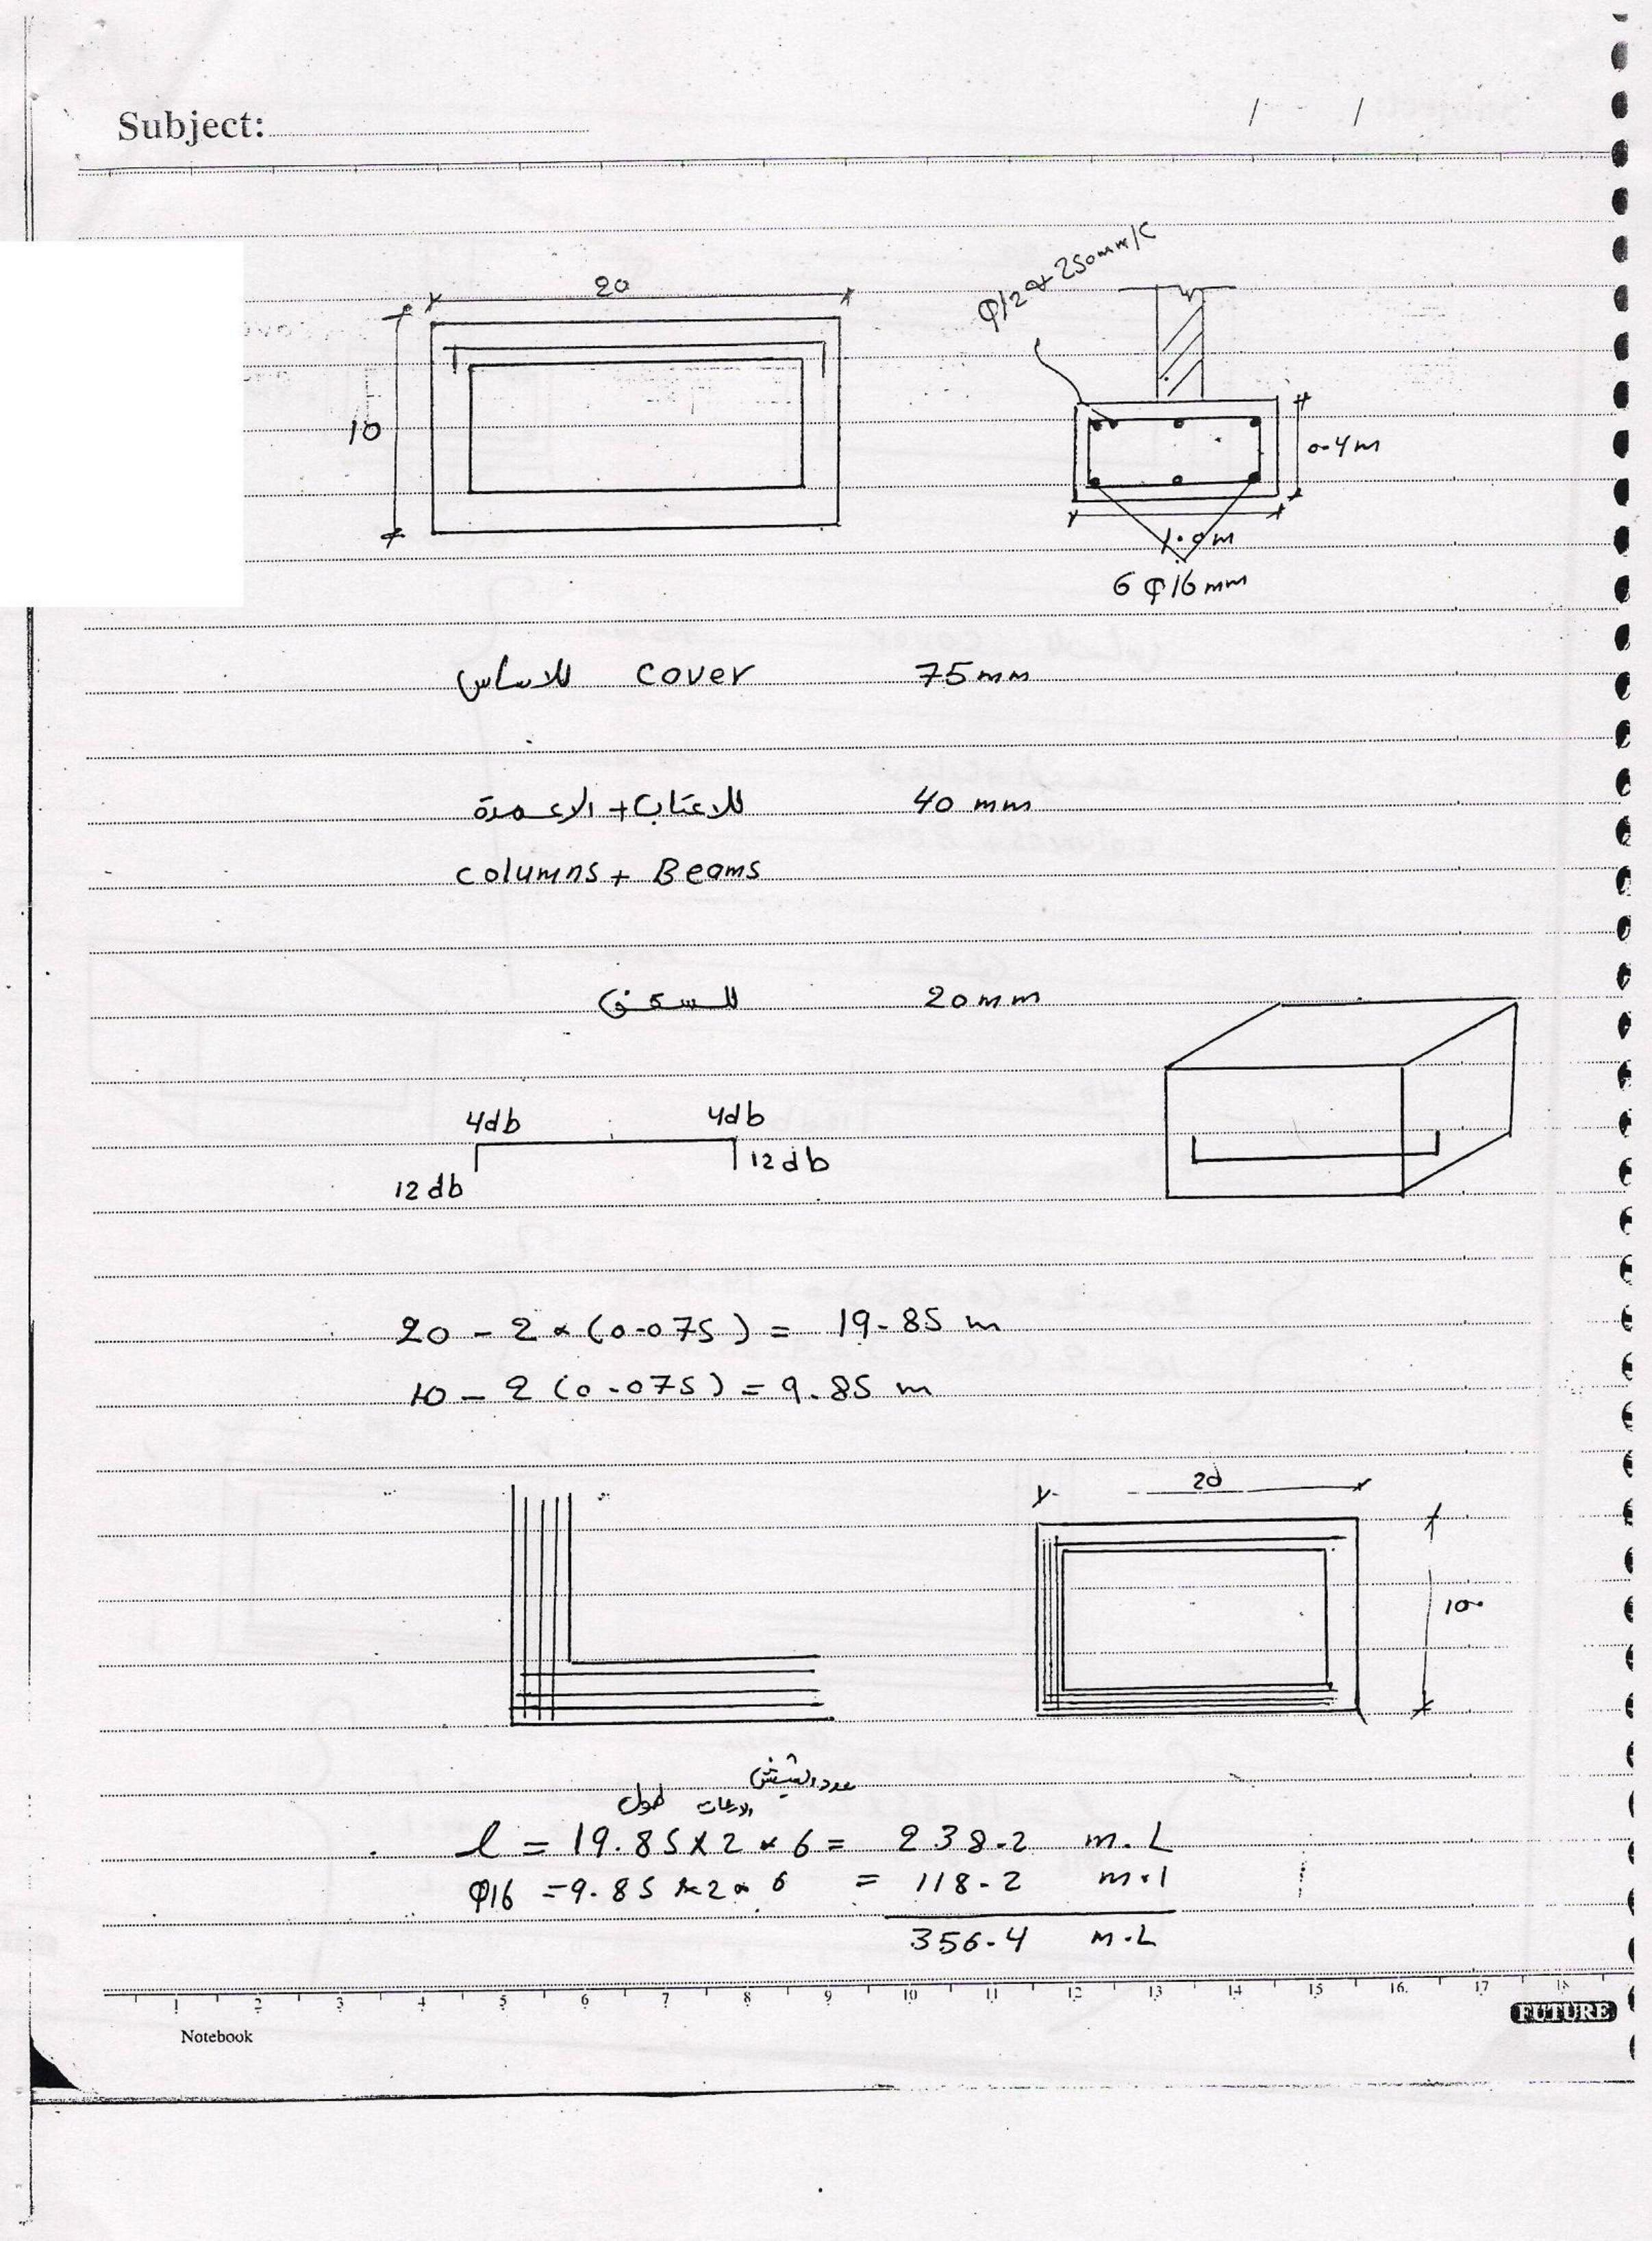 Subject:
/ /
20
10
φ12 at 250mm/C
0.4m
1.0m
6 φ16mm
للاساس cover 75mm
للاعتاب + الاعمدة 40 mm
columns + Beams
للسقف 20mm
4db 4db
12db 12db
20 - 2 × (0.075) = 19.85 m
10 - 2 (0.075) = 9.85 m
20
10
عدد الشيش
طول
l = 19.85 × 2 × 6 = 238.2 m.L
φ16 = 9.85 × 2 × 6 = 118.2 m.l
356.4 m.L
1 2 3 4 5 6 7 8 9 10 11 12 13 14 15 16 17 18
FUTURE
Notebook